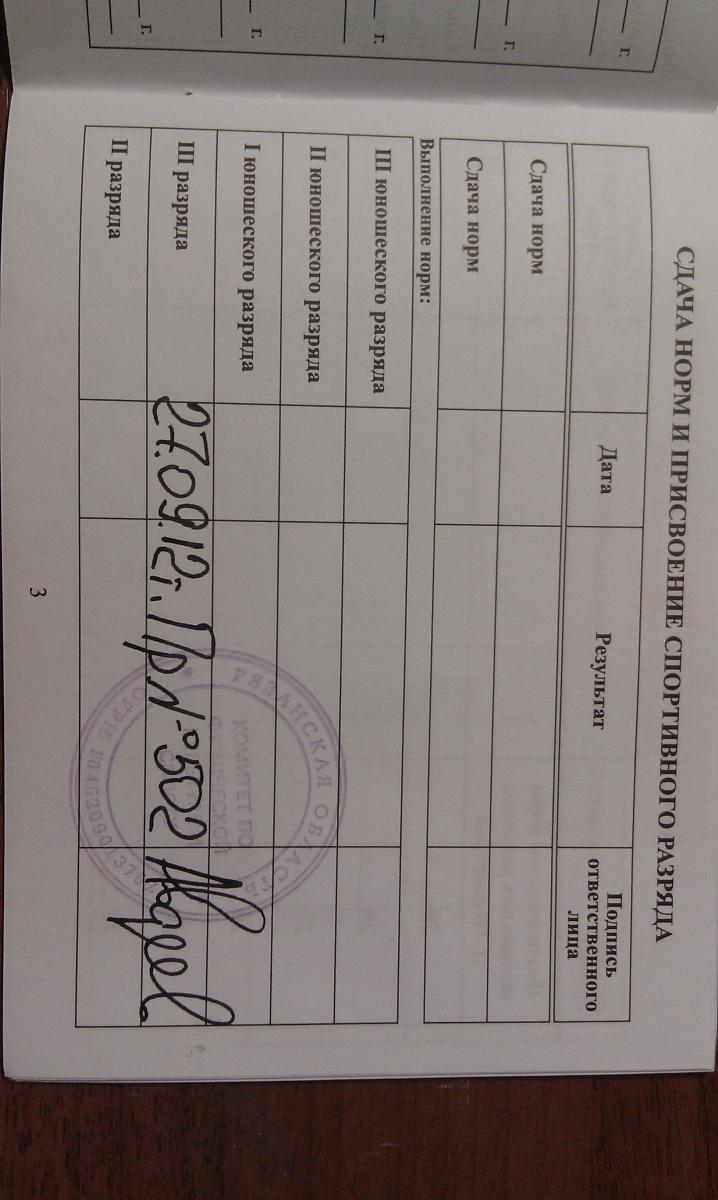 г.
г.
г.
г.
г.
СДАЧА НОРМ И ПРИСВОЕНИЕ СПОРТИВНОГО РАЗРЯДА
Дата Результат Подпись ответственного лица
Сдача норм
Сдача норм
Выполнение норм:
III юношеского разряда
II юношеского разряда
I юношеского разряда
III разряда 27.09.12г. Пр №502
II разряда
РЯЗАНСКАЯ ОБЛАСТЬ
КОМИТЕТ ПО
ФИЗИЧЕСКОЙ
ОГРН
3